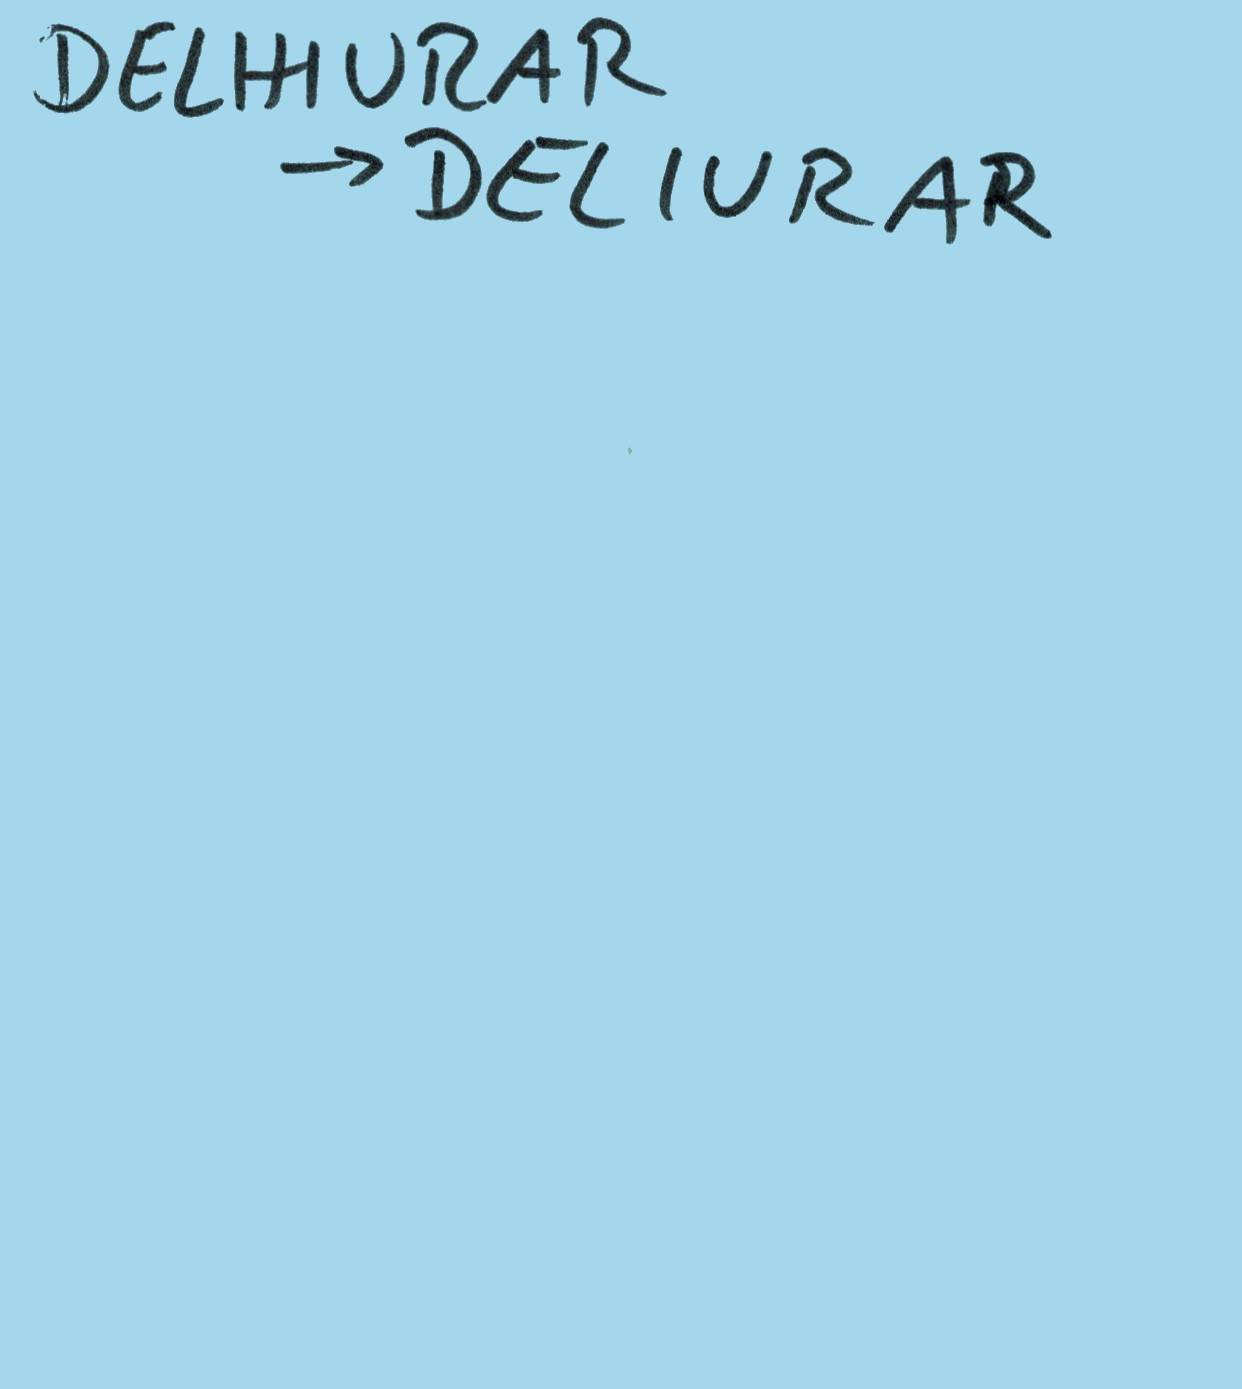 DELHIURAR
→ DELIURAR